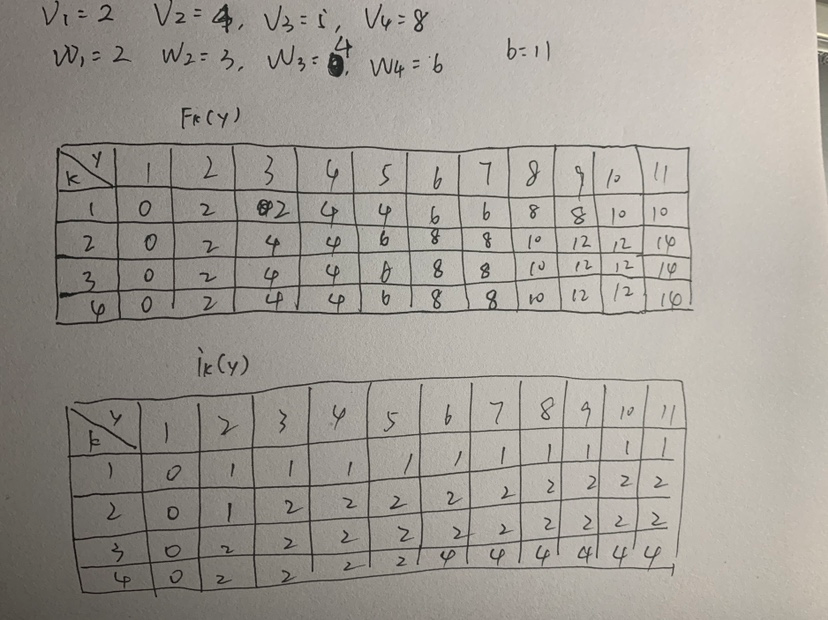 V₁=2 V₂=4, V₃=i, V₄=8
W₁=2 W₂=3, W₃=4, W₄=6 b=11
Fk(y)
k y 1 2 3 4 5 6 7 8 9 10 11
1 0 2 2 4 4 6 6 8 8 10 10
2 0 2 4 4 6 8 8 10 12 12 14
3 0 2 4 4 8 8 10 12 12 14
4 0 2 4 4 6 8 8 10 12 12 14
ik(y)
k y 1 2 3 4 5 6 7 8 9 10 11
1 0 1 1 1 1 1 1 1 1 1 1
2 0 1 2 2 2 2 2 2 2 2 2
3 0 2 2 2 2 2 2 2 2 2 2
4 0 2 2 2 2 4 4 4 4 4 4